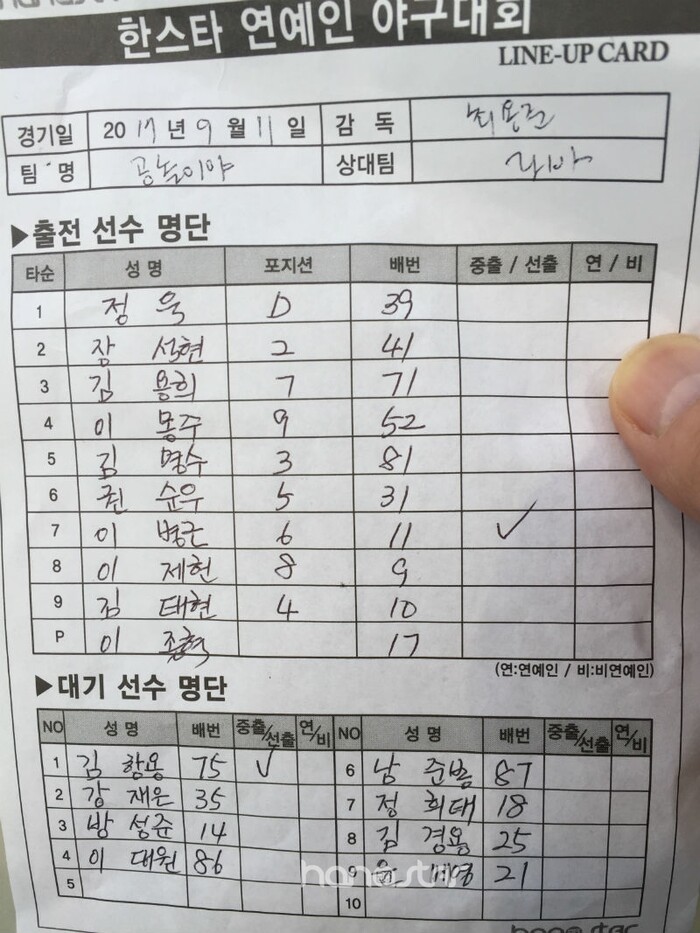 한스타 연예인 야구대회
LINE-UP CARD
경기일 2017년 9월 11일 감독 최용준
팀명 공놀이야 상대팀
▶출전 선수 명단
타순 성명 포지션 배번 중출/선출 연/비
1 정욱 D 39
2 장석현 2 41
3 김용희 7 71
4 이몽주 9 52
5 김명수 3 81
6 권순우 5 31
7 이병근 6 11 ✓
8 이제헌 8 9
9 김태현 4 10
P 이종혁 17
(연:연예인 / 비:비연예인)
▶대기 선수 명단
NO 성명 배번 중출/선출 연/비 NO 성명 배번 중출/선출 연/비
1 김함용 75 ✓ 6 남준봉 87
2 강재은 35 7 정희태 18
3 방성준 14 8 김경용 25
4 이대원 86 9 윤 21
5 10
hanastar